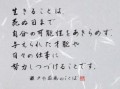 生きることは、
死ぬ日まで
自分の可能性をあきらめず、
与えられた才能や
日々の仕事に
努力しつづけることです。